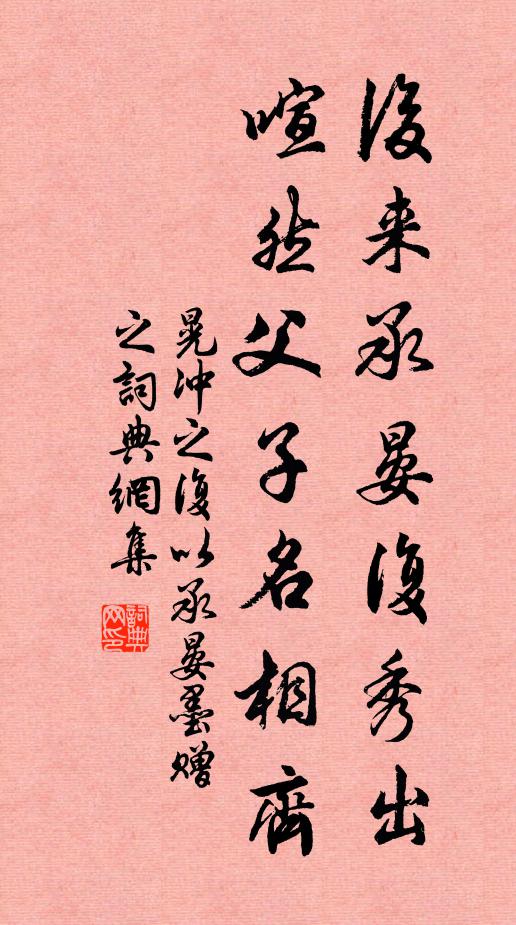 後来承晏復秀出
喧然父子名相齊
晁冲之復以承晏墨贈
之詞典網集
詞典网印